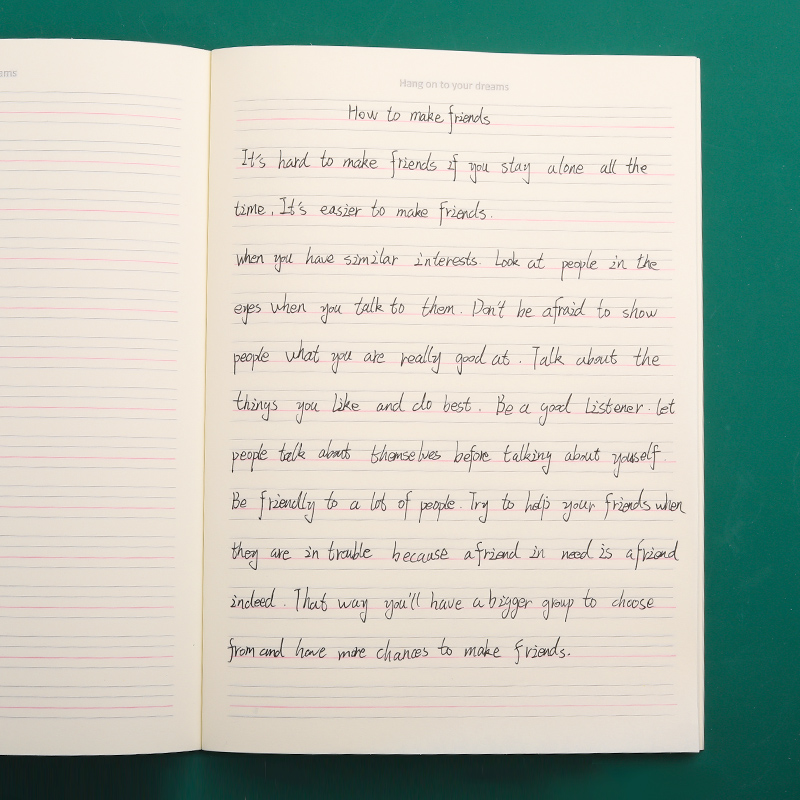 ems
Hang on to your dreams
How to make friends
It's hard to make friends if you stay alone all the
time. It's easier to make friends.
when you have similar interests. Look at people in the
eyes when you talk to them. Don't be afraid to show
people what you are really good at. Talk about the
things you like and do best. Be a good listener. let
people talk about themselves before talking about yourself.
Be friendly to a lot of people. Try to help your friends when
they are in trouble because a friend in need is a friend
indeed. That way you'll have a bigger group to choose
from and have more chances to make friends.